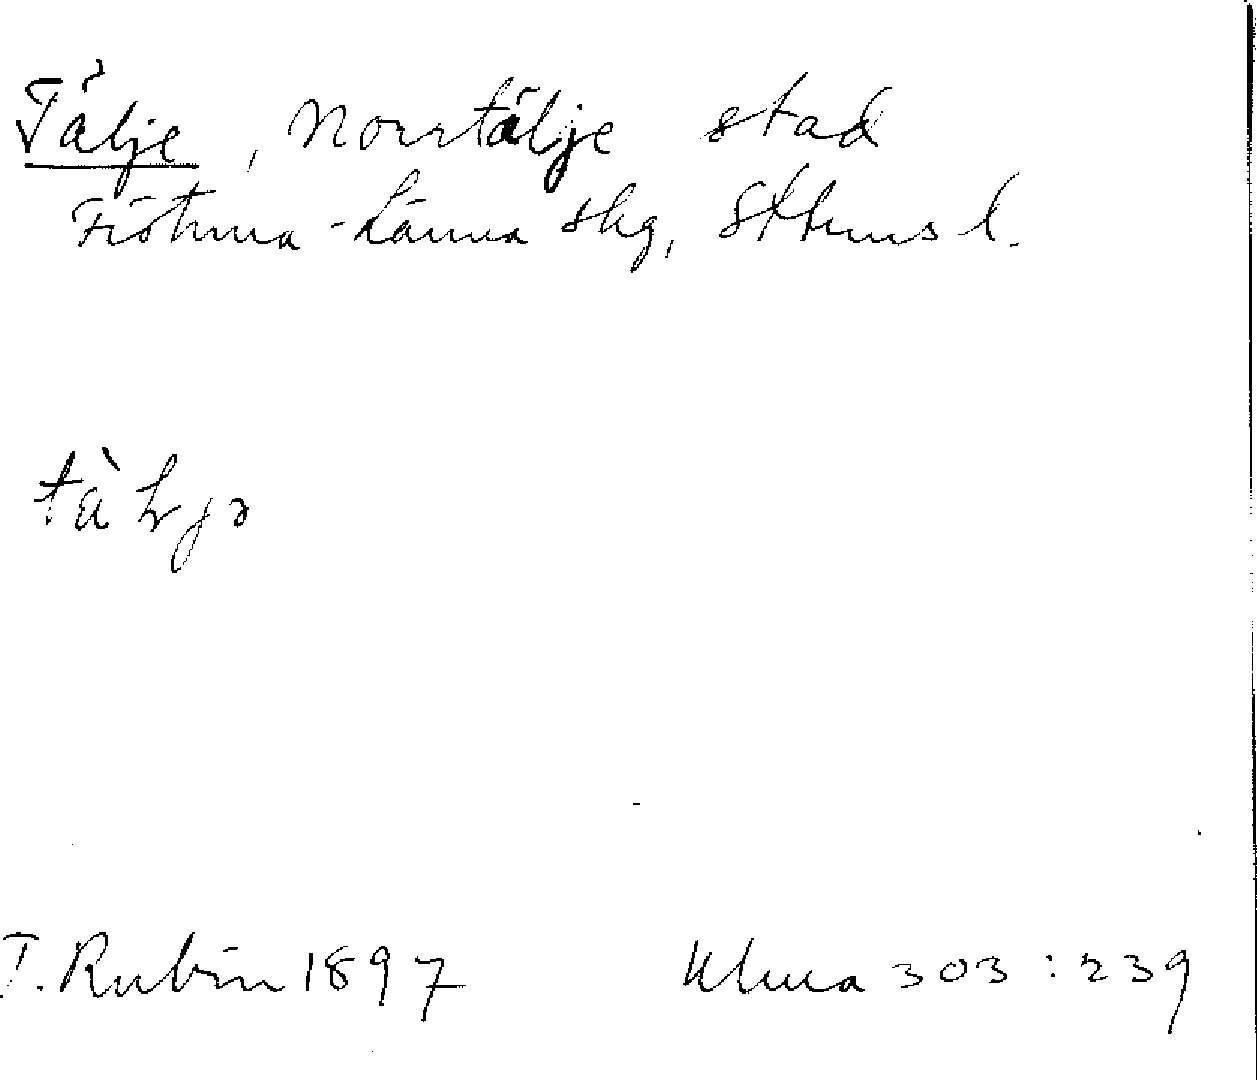 Tälje, Norrtälje stad
Frötuna-Länna skg, Sthms l.
T. Rubin 1897 Uluna 303:239